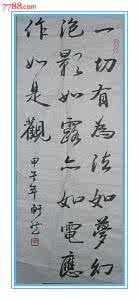 7788.com
一切有為法如夢幻
泡影如露亦如電應
作如是觀
甲午年